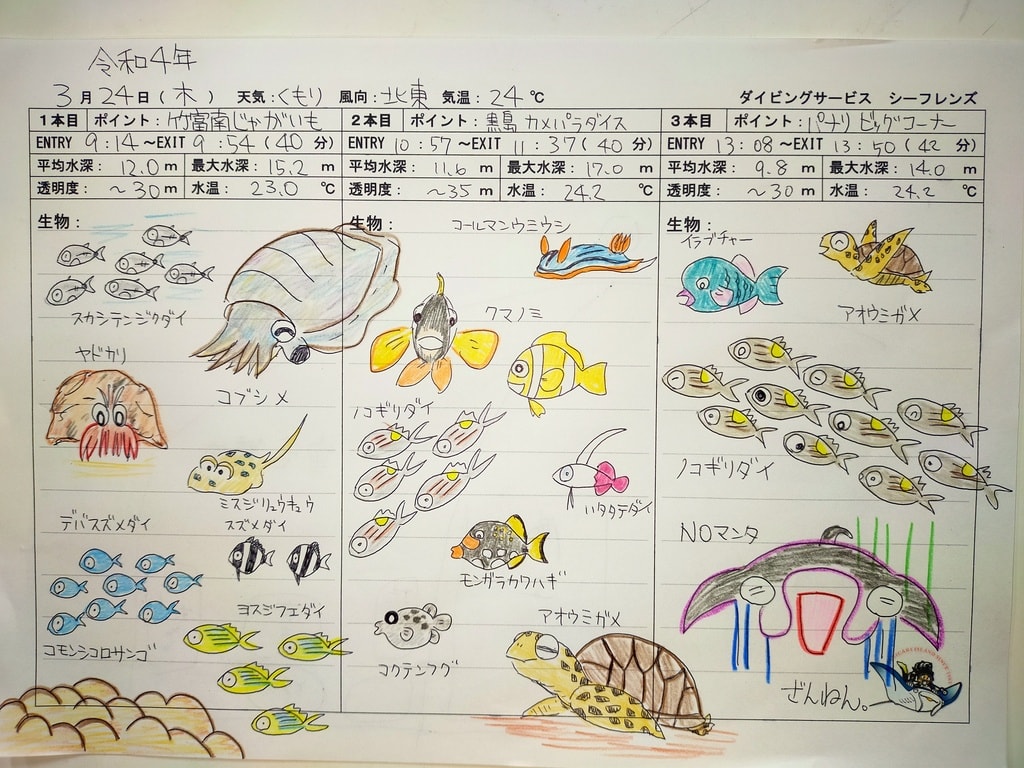 令和4年
3月24日(木) 天気:くもり 風向:北東 気温:24℃ ダイビングサービス シーフレンズ
1本目 ポイント:竹富南じゃがいも
ENTRY 9:14~EXIT 9:54(40分)
平均水深: 12.0 m 最大水深: 15.2 m
透明度: ~30 m 水温: 23.0 ℃
生物:
スカシテンジクダイ
ヤドカリ
コブシメ
ミスジリュウキュウ
スズメダイ
デバスズメダイ
ヨスジフエダイ
コモンシコロサンゴ
2本目 ポイント:黒島 カメパラダイス
ENTRY 10:57~EXIT 11:37(40分)
平均水深: 11.6 m 最大水深: 17.0 m
透明度: ~35 m 水温: 24.2 ℃
生物:
コールマンウミウシ
クマノミ
ノコギリダイ
ハタタテダイ
モンガラカワハギ
アオウミガメ
コクテンフグ
3本目 ポイント:パナリ ビッグコーナー
ENTRY 13:08~EXIT 13:50(42分)
平均水深: 9.8 m 最大水深: 14.0 m
透明度: ~30 m 水温: 24.2 ℃
生物:
イラブチャー
アオウミガメ
ノコギリダイ
NOマンタ
ざんねん。